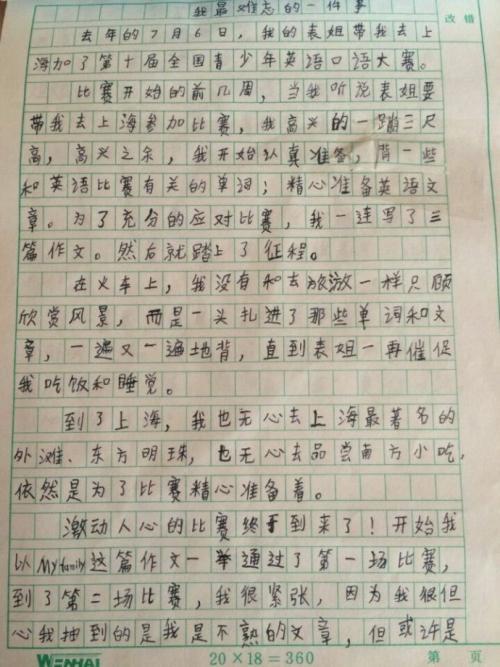 我最难忘的一件事
改错
去年的7月6日，我的表姐带我去上
海加了第十届全国青少年英语口语大赛。
比赛开始的前几周，当我听说表姐要
带我去上海参加比赛，我高兴的一蹦三尺
高，高兴之余，我开始认真准备，背一些
和英语比赛有关的单词；精心准备英语文
章。为了充分的应对比赛，我一连写了三
篇作文。然后就踏上了征程。
在火车上，我没有和去旅游一样只顾
欣赏风景，而是一头扎进了那些单词和文
章，一遍又一遍地背，直到表姐一再催促
我吃饭和睡觉。
到了上海，我也无心去上海最著名的
外滩、东方明珠，也无心去品尝南方小吃，
依然是为了比赛精心准备着。
激动人心的比赛终于到来了！开始我
以My family这篇作文一举通过了第一场比赛，
到了第二场比赛，我很紧张，因为我很但
心我抽到的是我是不熟的文章，但或许是
WENHAI 20×18=360 第 页